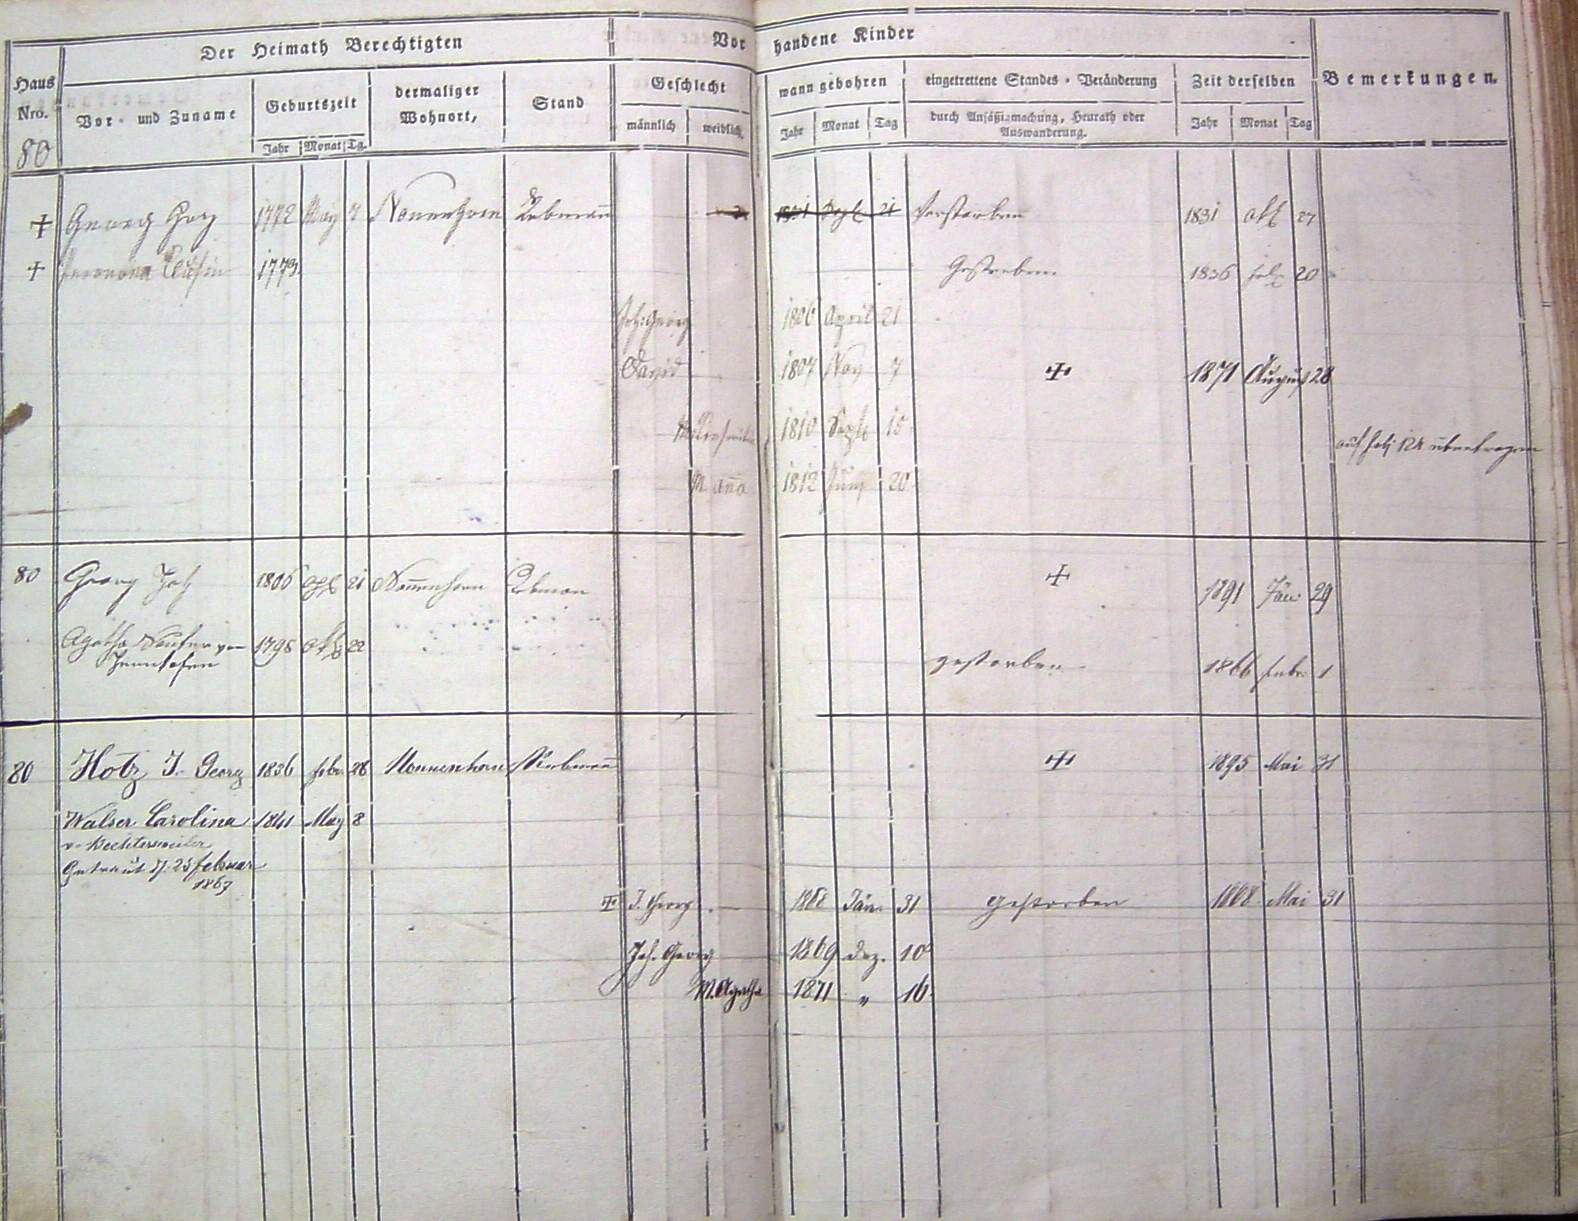 Der Heimath Berechtigten
Vor handene Kinder
Haus Nro.
80
Vor- und Zuname
Geburtszeit
Jahr Monat Tg.
dermaliger Wohnort,
Stand
Geschlecht
männlich weiblich
wann gebohren
Jahr Monat Tag
eingetrettene Standes-Veränderung
durch Ansäßigmachung, Heurath oder
Auswanderung.
Zeit derselben
Jahr Monat Tag
Bemerkungen.
+ Georg 1772 May 7 Nonnenhorn Rebmann 21 Verstorben 1831 okt 27
+ 1779 Gestorben 1836 20
Joh: Georg 1806 April 21
David 1807 Nov 7 + 1871 August 28
1810 Sept 15
auf übertragen
M. Anna 1812 20
80 Georg Hotz 1806 Apl 21 Nonnenhorn Rebman + 1891 Jän 29
Agatha von 1798 okt 22
gestorben 1866 febr 1
80 Hotz J. Georg 1836 febr 28 Nonnenhorn Rebmann + 1895 Mai 31
Walser Carolina 1841 May 8
v. Bechtersweiler
Getraut d. 23 februar
1863
+ J. Georg 1868 Jän. 31 gestorben 1868 Mai 31
Joh. Georg 1869 dez. 10
M. Agatha 1871 " 16